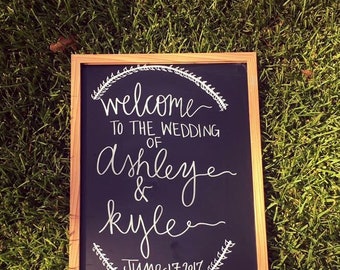 welcome
TO THE WEDDING
OF
ashley
&
kyle
JUNE 17 2017